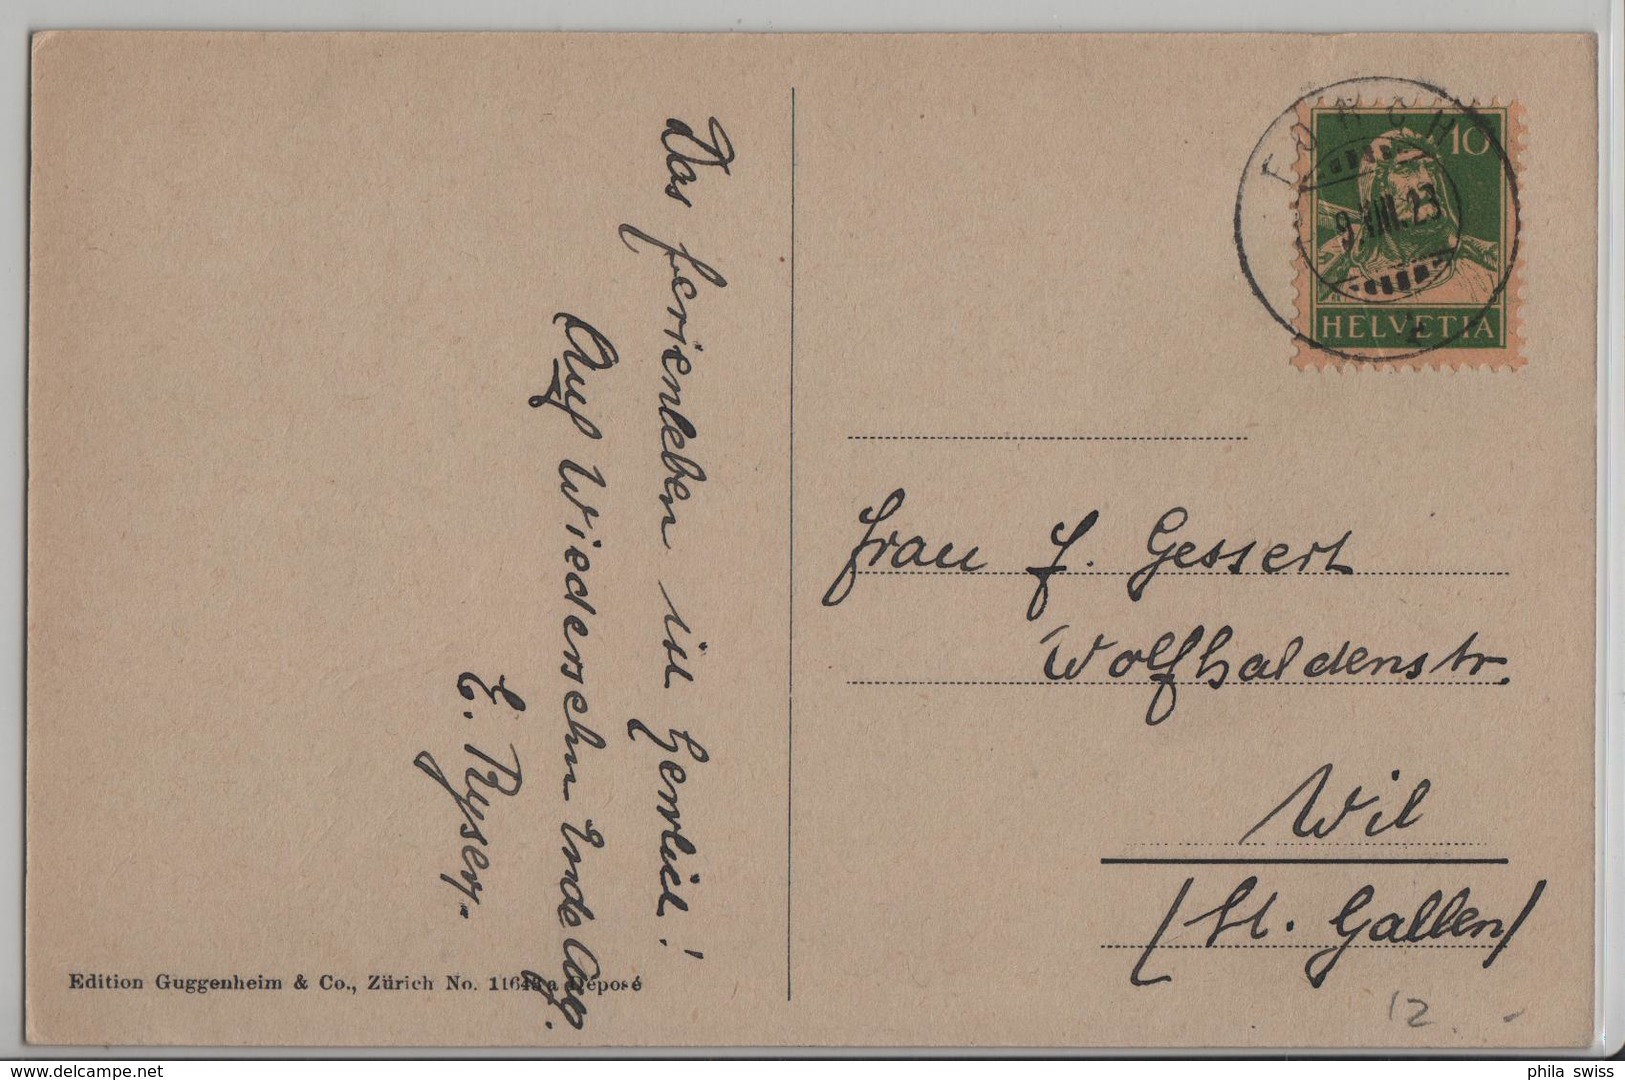 Das Ferienleben ist Herrlich!
Auf Wiedersehn Ende Aug.
E. Ryser.
Edition Guggenheim & Co., Zürich No. Déposé
FORCH
9.VIII.23
10
HELVETIA
Frau F. Gessert
Wolfhaldenstr.
Wil
(St. Gallen)
12.-
delcampe.net
phila_swiss